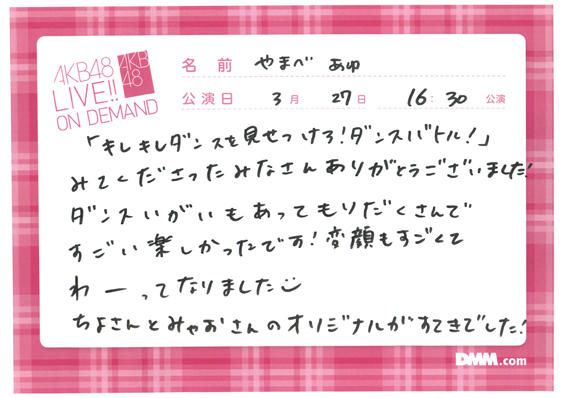 AKB48
LIVE!!
ON DEMAND
AKB
48
名前 やまべ あゆ
公演日 3月 27日 16:30 公演
「キレキレダンスを見せつけろ!ダンスバトル!」
みてくださったみなさんありがとうございました!
ダンスいがいもあってもりだくさんで
すごい楽しかったです!変顔もすごくて
わーってなりました
ちよさんとみゃおさんのオリジナルがすてきでした!
DMM.com